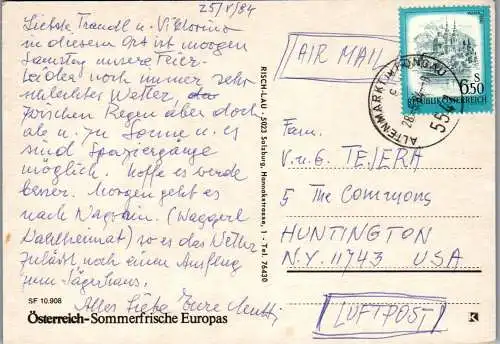 25/V/84
Liebste Traudl u. Viktorino
in diesem Ort ist morgen
Samstag unsere Feier.
Leider noch immer sehr
schlechtes Wetter,
zwischen Regen aber doch
ab u. zu Sonne u. es
sind Spaziergänge
möglich. Hoffe es werde
besser. Morgen geht es
nach Wagrain, (Waggerl
Wahlheimat) wo es das Wetter
zulässt noch einen Ausflug
zum Jägerhaus.
Alles Liebe Eure Mutti
SF 10.908
Österreich-Sommerfrische Europas
RISCH-LAU · 5023 Salzburg, Hannakstrasse, 1 - Tel. 76430
AIR MAIL
ALTENMARKT
5541
S
6.50
REPUBLIK ÖSTERREICH
Fam.
V. u. G. TEJERA
5 The Commons
HUNTINGTON
N.Y. 11743 USA
LUFTPOST